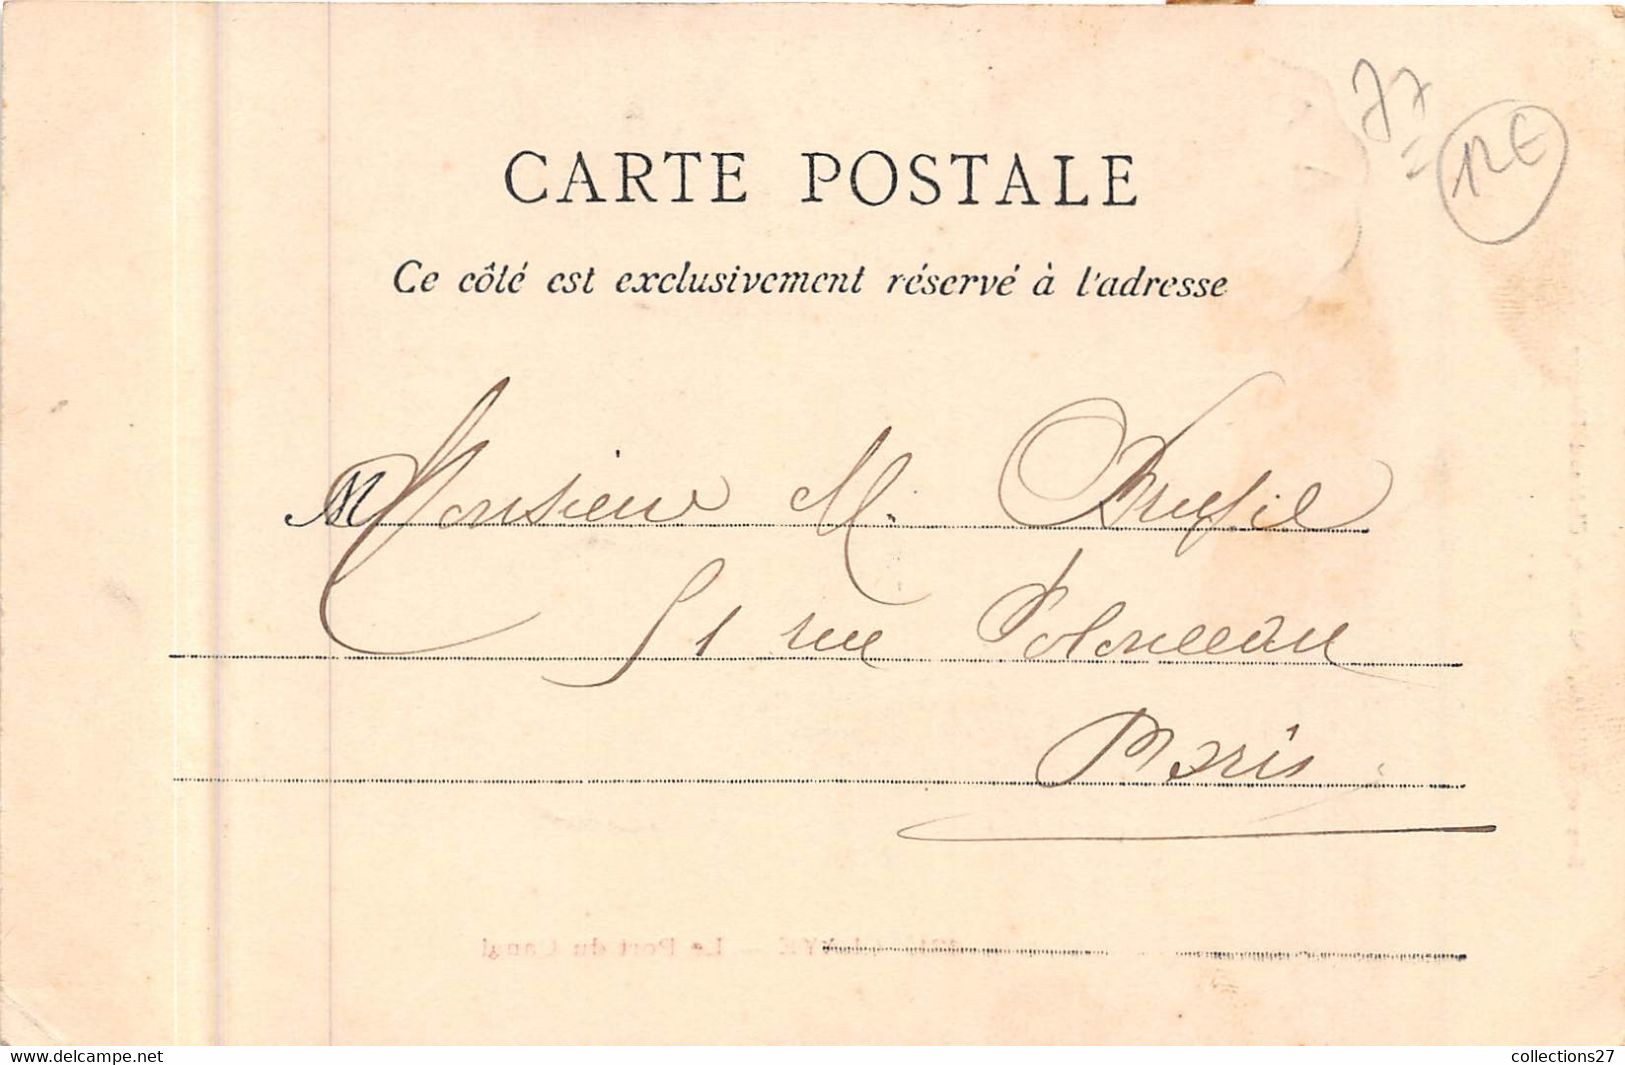 77
12€
CARTE POSTALE
Ce côté est exclusivement réservé à l'adresse
Monsieur M.
51 rue Polonceau
Paris
Le Port du Canal
www.delcampe.net
collections27